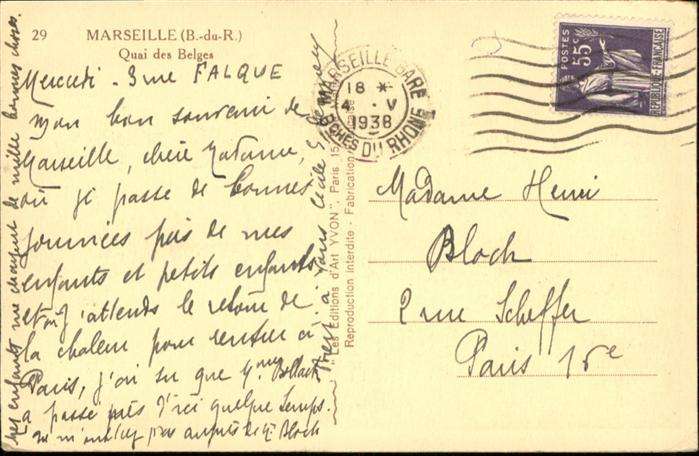 29 MARSEILLE (B.-du-R.)
Quai des Belges
Mercredi - 3 rue FALQUE
Mon bon souvenir de
Marseille, chère Madame,
où je passe de bonnes
journées près de mes
enfants et petits enfants
et où j'attends le retour de
la chaleur pour rentrer à
Paris, j'ai su que Mme
a passé près d'ici quelque temps.
ne m'oubliez pas auprès de Mr Bloch
mes enfants me chargent de mille bonnes choses.
"Les Editions d'Art YVON", Paris 15
Reproduction interdite - Fabrication
MARSEILLE GARE
18 *
4 . V
1938
BCHES DU RHONE
POSTES
55c
REPUBLIQUE FRANÇAISE
Madame Henri
Bloch
2 rue Scheffer
Paris 16e